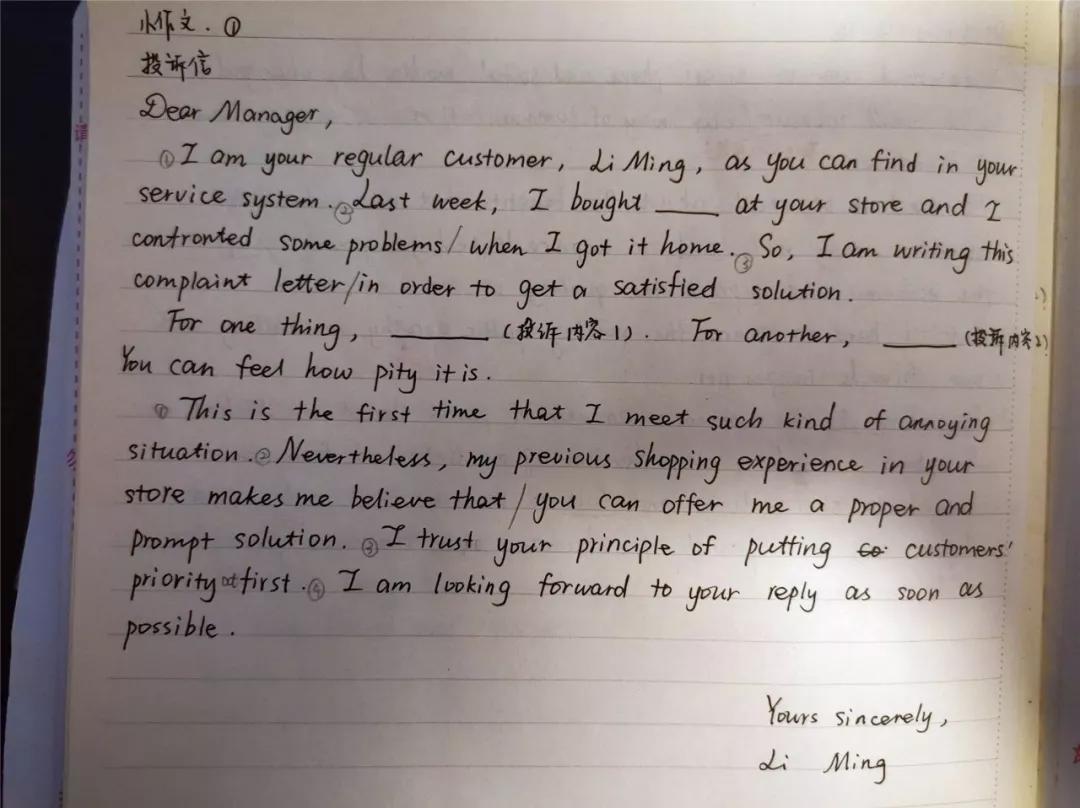 小作文.①
投诉信
Dear Manager,
①I am your regular customer, Li Ming, as you can find in your
service system.②Last week, I bought ____ at your store and I
confronted some problems/when I got it home.③So, I am writing this
complaint letter/in order to get a satisfied solution.
For one thing, ______ (投诉内容1). For another, ______ (投诉内容2)
You can feel how pity it is.
①This is the first time that I meet such kind of annoying
situation.②Nevertheless, my previous shopping experience in your
store makes me believe that/you can offer me a proper and
prompt solution.③I trust your principle of putting co customers'
priority at first.④I am looking forward to your reply as soon as
possible.
Yours sincerely,
Li Ming